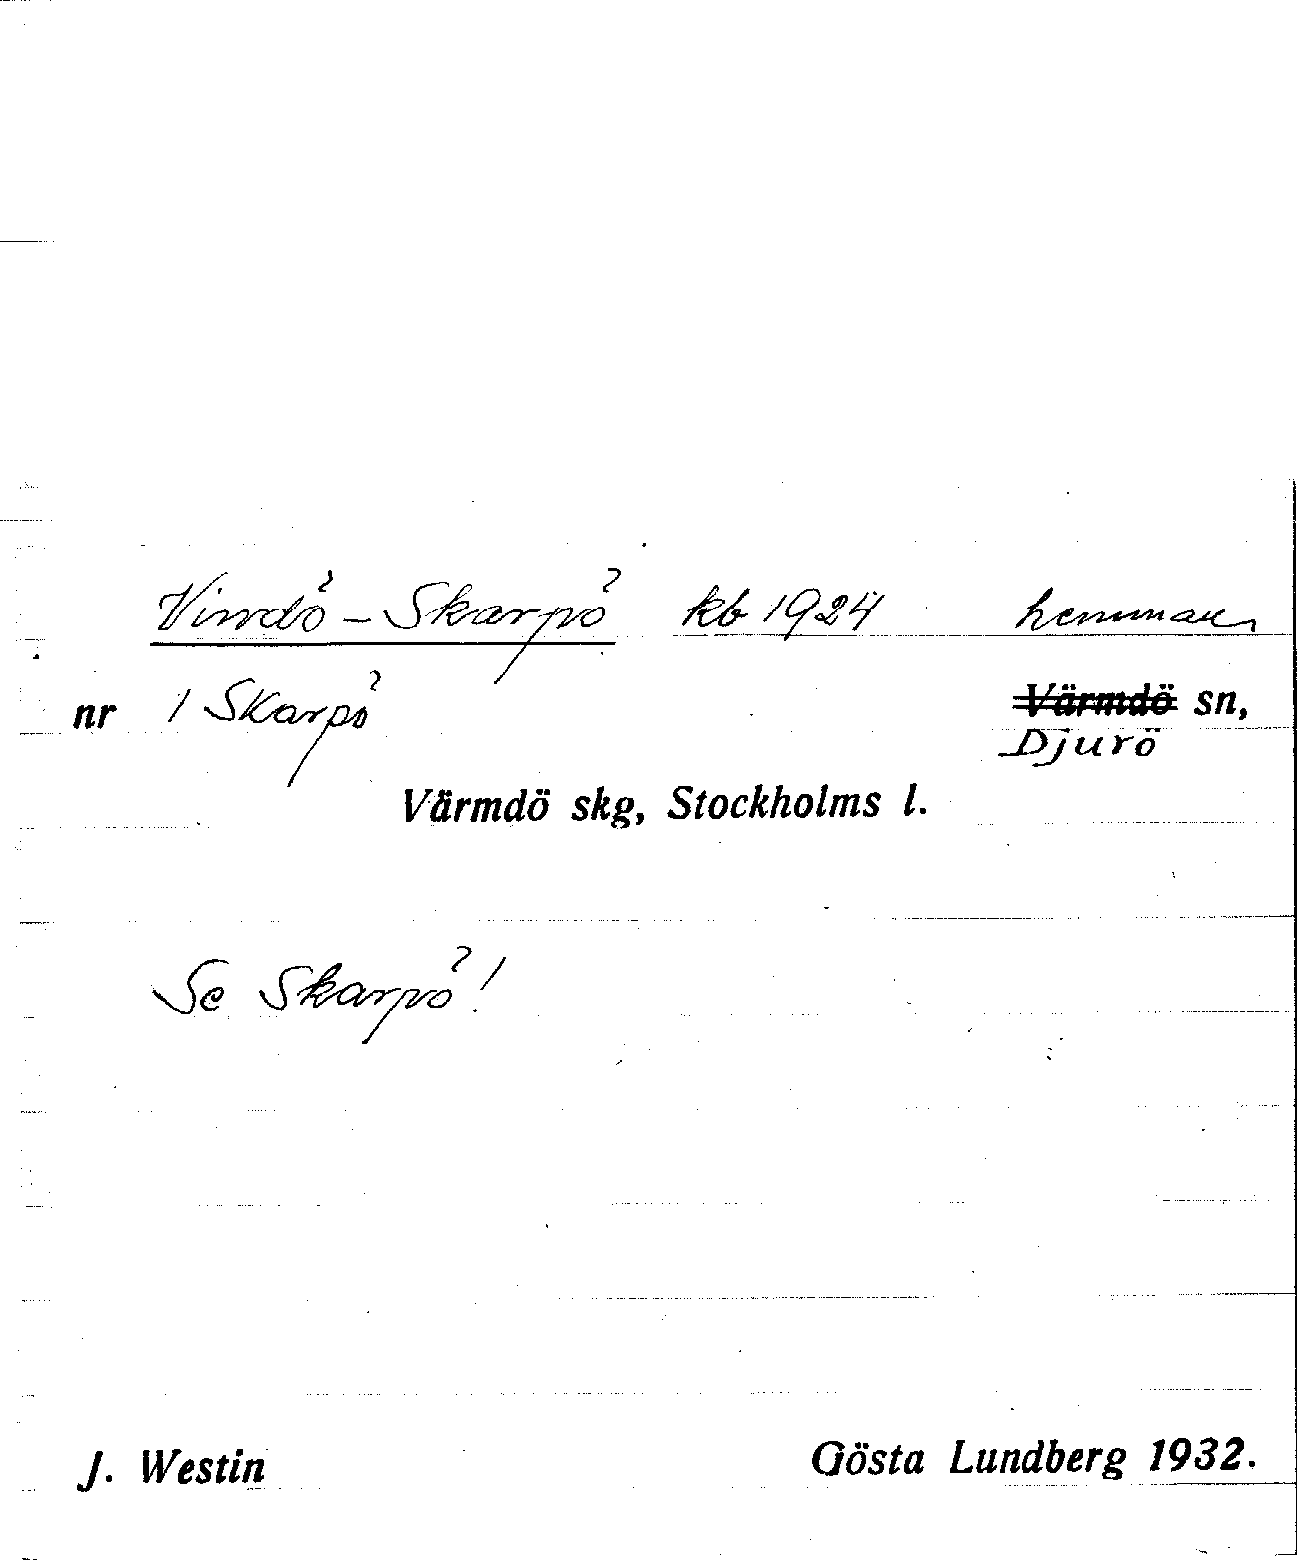 Vindö - Skarpö kb 1924 hemman
nr 1 Skarpö Värmdö sn,
Djurö
Värmdö skg, Stockholms l.
Se Skarpö!
J. Westin Gösta Lundberg 1932.